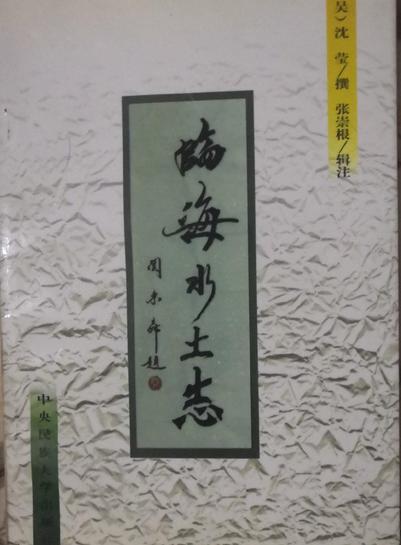 吴）沈 莹／撰 张崇根／辑注
临海水土志
中央民族大学出版